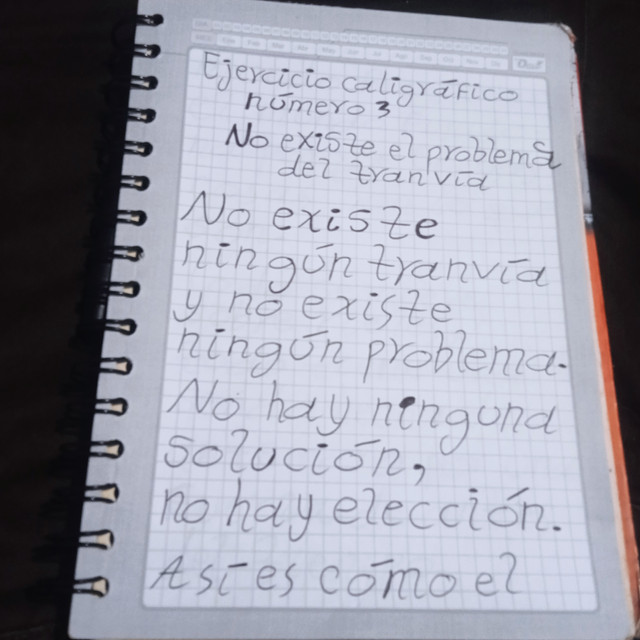 Ejercicio caligráfico
número 3
No existe el problema
del tranvía
No existe
ningún tranvía
y no existe
ningún problema.
No hay ninguna
solución,
no hay elección.
Así es cómo el